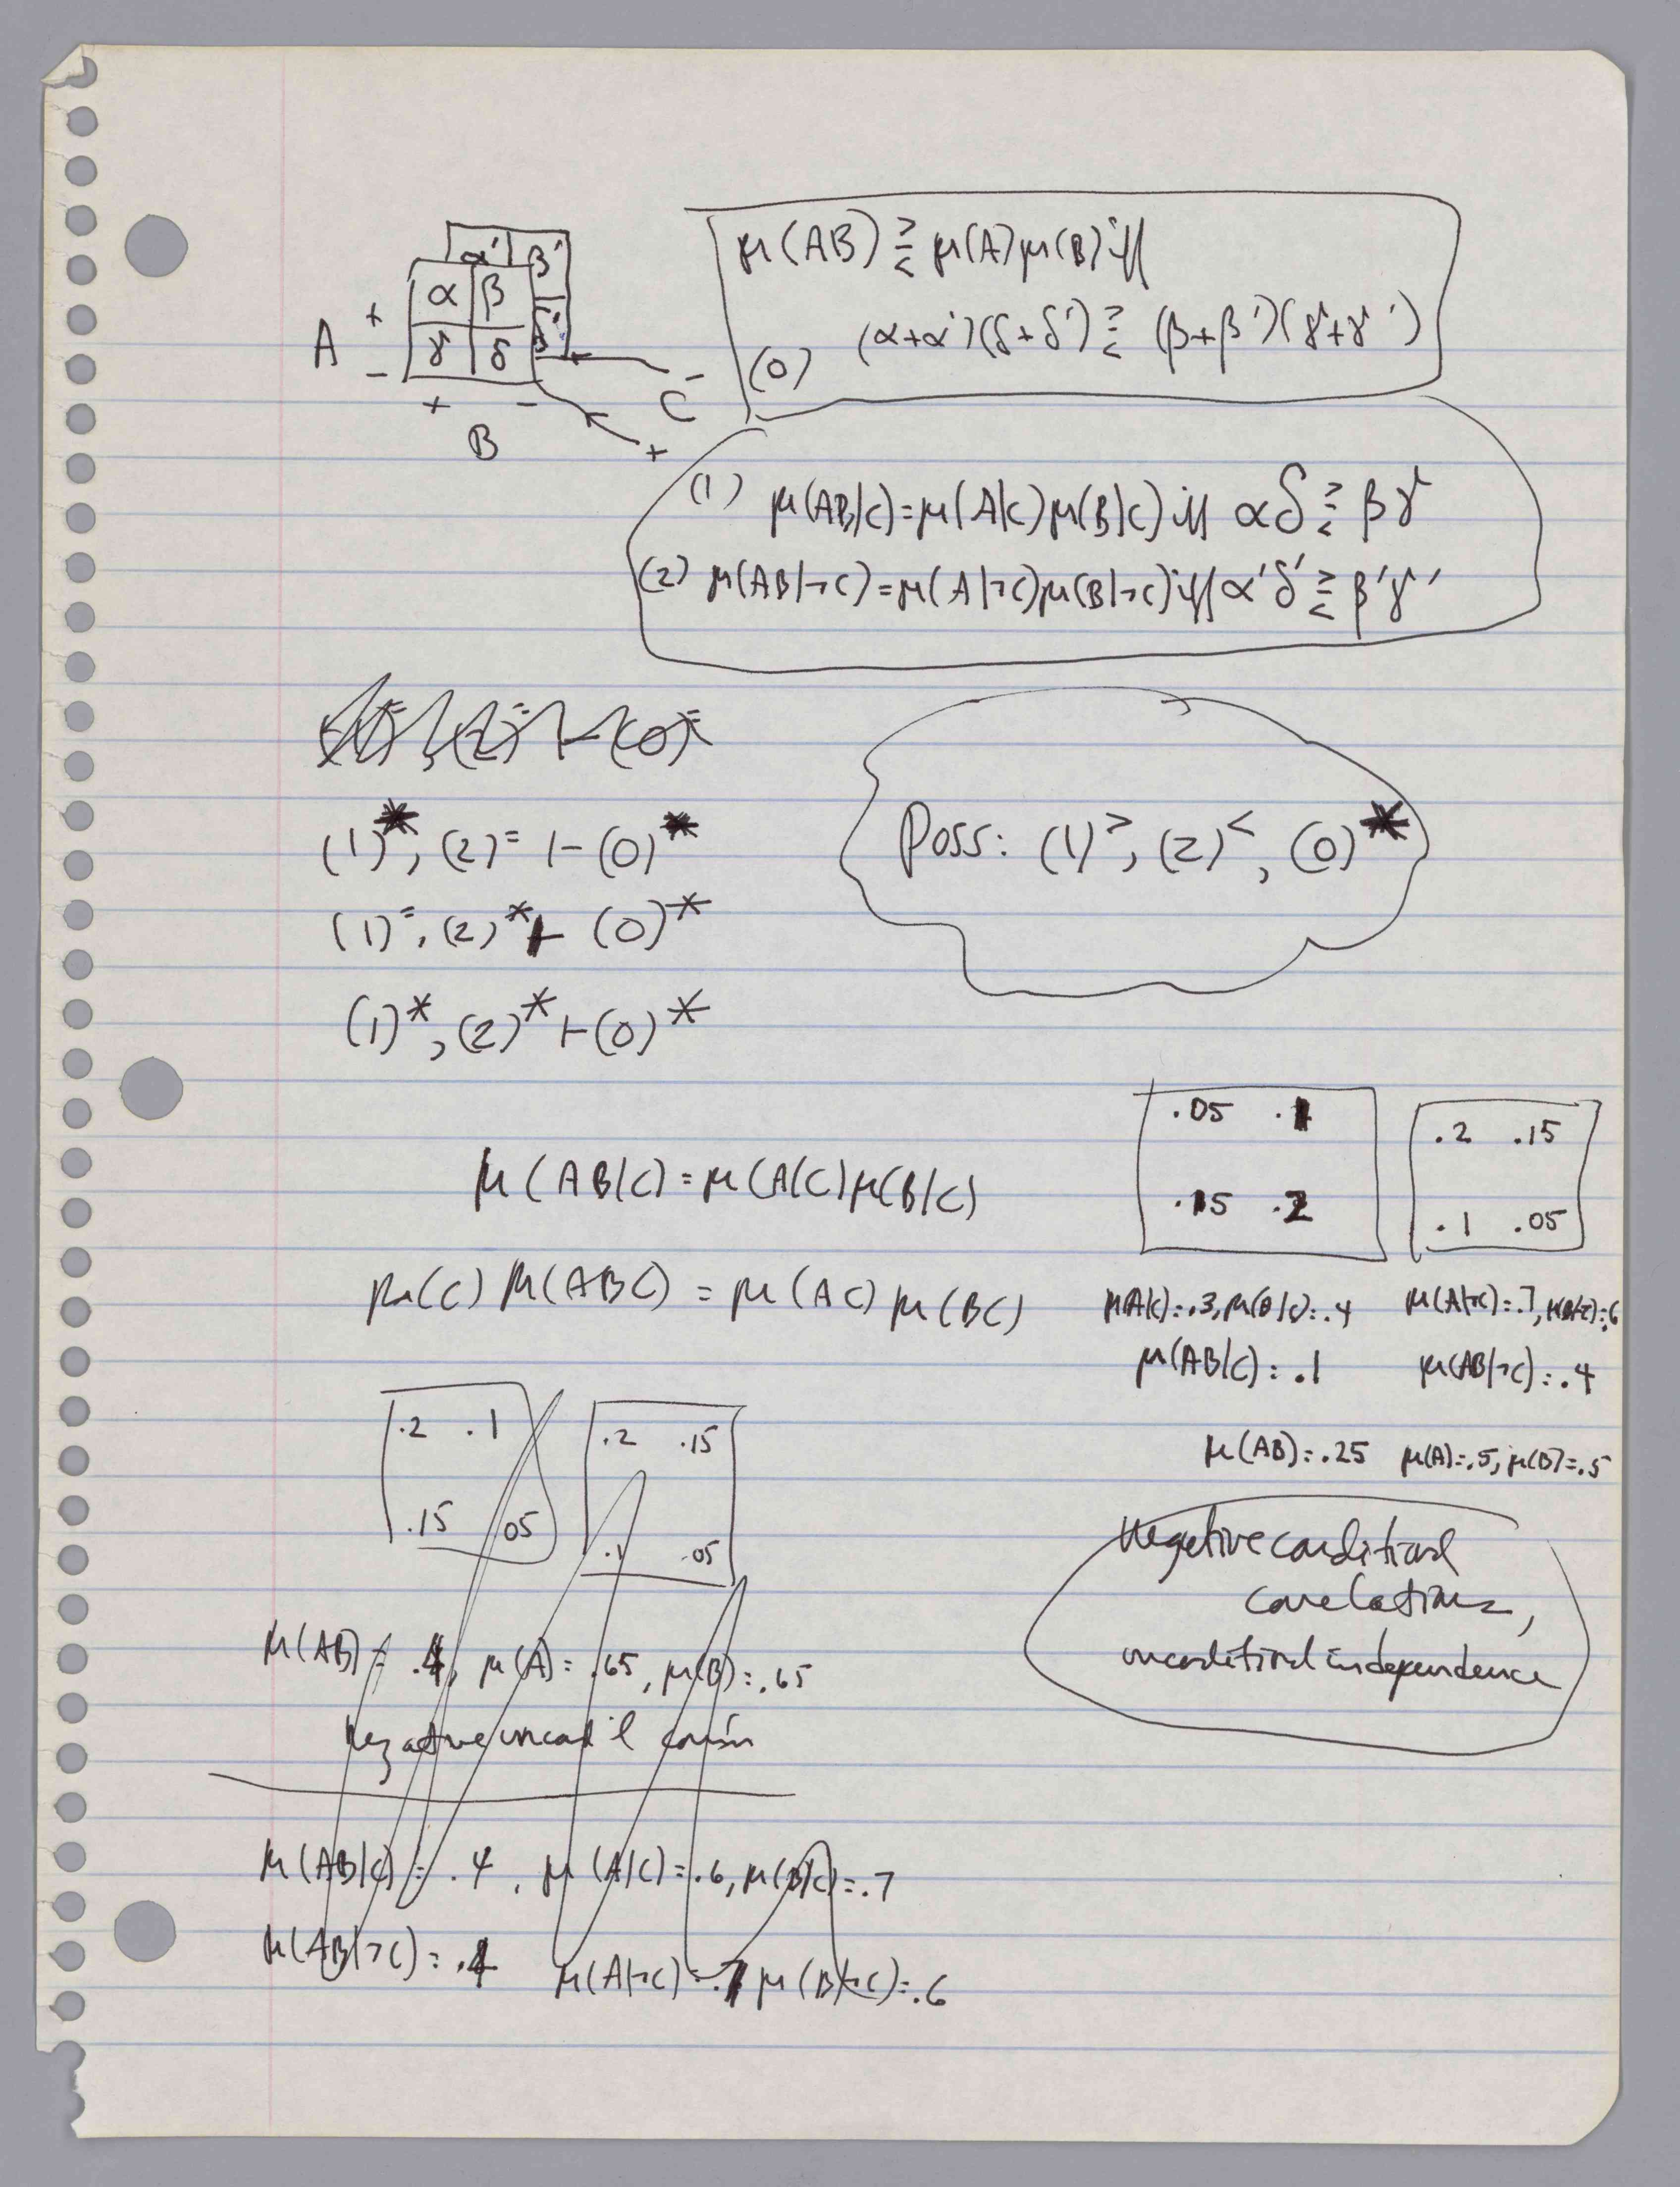 α' β'
α β
A + γ δ γ' δ'
−
+ −
B
C −
+
μ(AB) ⋛ μ(A)μ(B) iff
(0) (α+α')(δ+δ') ⋛ (β+β')(γ+γ')
(1) μ(AB|C)=μ(A|C)μ(B|C) iff αδ ⋛ βγ
(2) μ(AB|¬C)=μ(A|¬C)μ(B|¬C) iff α'δ' ⋛ β'γ'
(1)⁼, (2)⁼ ⊢ (0)⁼
(1)*, (2)⁼ ⊢ (0)*
(1)⁼, (2)* ⊢ (0)*
(1)*, (2)* ⊢ (0)*
Poss: (1)^>, (2)^<, (0)*
μ(AB|C)=μ(A|C)μ(B|C)
μ(C) μ(ABC) = μ(AC) μ(BC)
.05 .1
.15 .2
.2 .15
.1 .05
μ(A|C)=.3, μ(B|C)=.4
μ(A|¬C)=.7, μ(B|¬C)=.6
μ(AB|C)=.1
μ(AB|¬C)=.4
μ(AB)=.25 μ(A)=.5, μ(B)=.5
Negative conditional
correlations,
unconditional independence
.2 .1
.15 .05
.2 .15
.1 .05
μ(AB)= .4, μ(A)= .65, μ(B)=.65
negative uncond'l corr'n
μ(AB|C)= .4, μ(A|C)=.6, μ(B|C)=.7
μ(AB|¬C)=.4 μ(A|¬C)=.7 μ(B|¬C)=.6